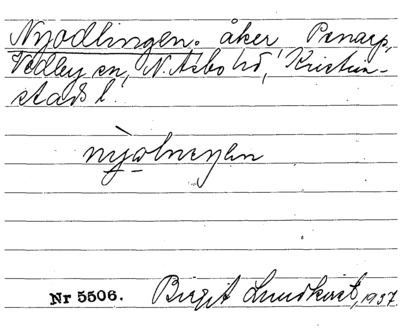 Nyodlingen. åker Penarp,
Vedby sn, N. Åsbo hd, Kristian-
stads l.
Nr 5506. Birgit Lundkvist, 1937